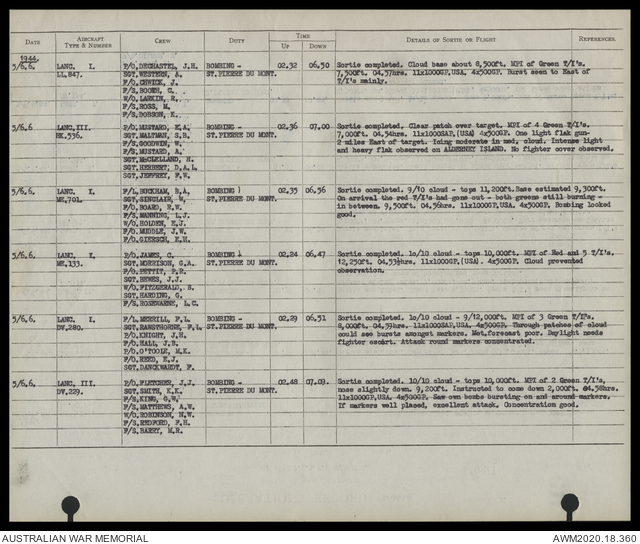 DATE AIRCRAFT TYPE & NUMBER CREW DUTY TIME UP DOWN DETAILS OF SORTIE OR FLIGHT REFERENCES.
1944.
5/6.6. LANC. I. P/O. DECHASTEL, J.H. BOMBING - 02.32 06.50 Sortie completed. Cloud base about 8,500ft. MPI of Green T/I's.
LL,847. SGT. WESTERN, A. ST.PIERRE DU MONT. 7,500ft. 04.57hrs. 11x1000GP,USA, 4x500GP. Burst seen to East of
F/O. CHWICK, J. T/I's mainly.
F/S. BOOTH, C.
W/O. LARKIN, R.
F/S. ROSS, M.
F/S. DOBSON, K.
5/6.6 LANC,III. P/O. MUSTARD, E.A. BOMBING - 02.36 07.00 Sortie completed. Clear patch over target. MPI of 4 Green T/I's.
NE,536. SGT. WALTMAN, S.B. ST.PIERRE DU MONT. 7,000ft. 04.54hrs. 11x1000SAP,(USA) 4x500GP. One light flak gun-
F/S. GOODWIN, W. 2 miles East of target. Icing moderate in med, cloud. Intense light
F/S. MUSTARD, A. and heavy flak observed on ALDERNEY ISLAND. No fighter cover observed.
SGT. McCLELLAND, H.
SGT. HERBERT, D.A.L.
SGT. JEFFREY, F.W.
5/6.6. LANC, I. F/L. BUCKHAM, B.A. BOMBING 02.35 06,56 Sortie completed. 9/10 cloud - tops 11,200ft. Base estimated 9,300ft.
ME,701. SGT. SINCLAIR, W. ST.PIERRE DU MONT. On arrival the red T/I's had gone out - both greens still burning -
P/O. BOARD, R.W. in between. 9,500ft. 04,56hrs. 11x1000GP,USA. 4x500GP. Bombing looked
F/S. MANNING, L.J. good.
W/O. HOLDEN, E.J.
F/O. MUDDLE, J.W.
F/O. GIERSCH, E.H.
5/6.6. LANC, I. P/O. JAMES, C. BOMBING 02.24 06.47 Sortie completed. 10/10 cloud - tops 10,000ft. MPI of Red and 5 T/I's.
ME,133. SGT. MORRISON, G.A. ST.PIERRE DU MONT. 12,250ft. 04,53½hrs. 11x1000GP,(USA). 4x500GP. Cloud prevented
P/O. PETTIT, P.R. observation.
SGT. HEWES, J.J.
W/O. FITZGERALD, B.
SGT. HARDING, G.
F/S. ROSEWARNE, L.C.
5/6.6. LANC, I. F/L. MERRILL, F.L. BOMBING - 02.29 06.51 Sortie completed. 10/10 cloud - 9/12,000ft. MPI of 3 Green T/I's.
DV,280. SGT. RANGTHORNE, F.L. ST.PIERRE DU MONT. 8,000ft. 04,59hrs. 11x1000SAP,USA, 4x500GP. Through patches of cloud
P/O. KNIGHT, A.H. could see bursts amongst markers. Met.forecast poor. Daylight needs
F/O. HALL, J.B. fighter escort. Attack round markers concentrated.
P/O. O'TOOLE, M.K.
F/O. REED, K.J.
SGT. DANCKWARDT, F.
5/6.6. LANC, III. P/O. FLETCHER, J.J. BOMBING - 02.48 07.09. Sortie completed. 10/10 cloud - tops 10,000ft. MPI of 2 Green T/I's,
DV,229. SGT. SMITH, K.K. ST.PIERRE DU MONT. nose slightly down. 9,200ft. Instructed to come down 2,000ft. 04,58hrs.
F/S. KING, G.W. 11x1000GP,USA. 4x500GP. Saw own bombs bursting on and around markers.
F/S. MATTHEWS, A.W. If markers well placed, excellent attack. Concentration good.
W/O. ROBINSON, N.W.
F/S. REDFORD, F.H.
F/S. BARRY, M.R.
AUSTRALIAN WAR MEMORIAL AWM2020.18.360